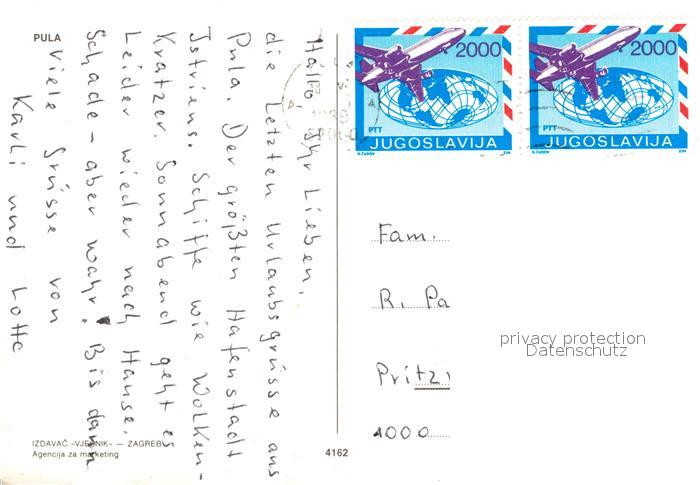 PULA
Hallo, Ihr Lieben,
die Letzten Urlaubsgrüsse aus
Pula. Der größten Hafenstadt
Istriens. Schiffe wie Wolken-
Kratzer. Sonnabend geht es
Leider wieder nach Hause.
Schade - aber wahr! Bis dann
Viele Grüsse von
Karli und Lotte
IZDAVAČ »VJESNIK« — ZAGREB
Agencija za marketing
4162
2000
PTT
JUGOSLAVIJA
2000
PTT
JUGOSLAVIJA
Fam.
R. Pa
Pritz
4000
privacy protection
Datenschutz